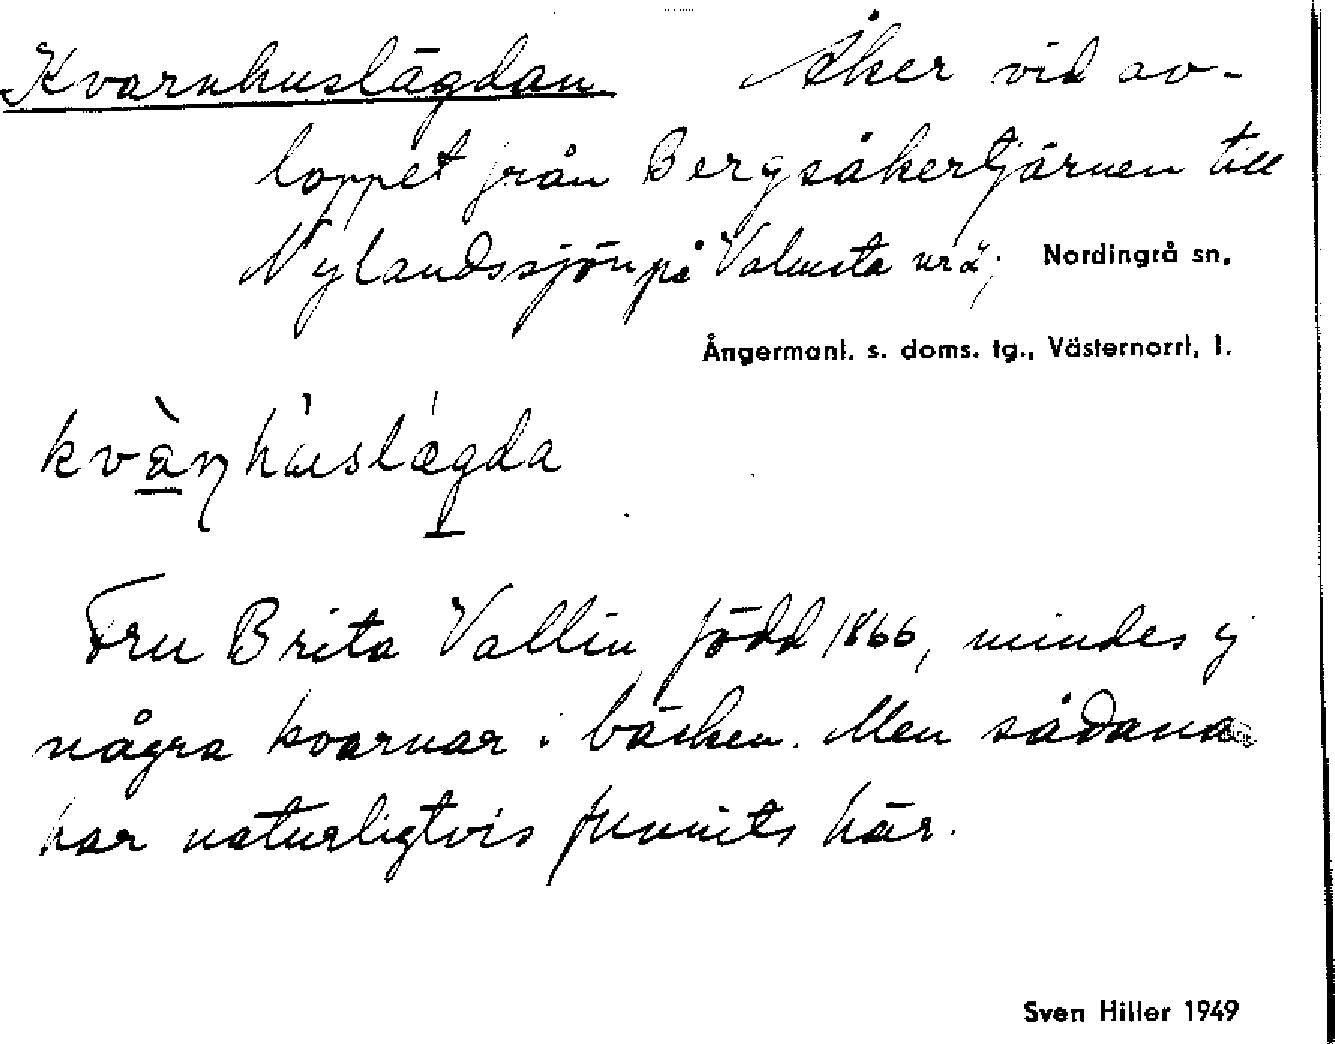 Kvarnhuslägdan Åker vid av-
loppet från Bergsåkertjärnen till
Nylandssjön på Valmsta urä; Nordingrå sn,
Ångermanl. s. doms. tg., Västernorrl. l.
kvàṇhúslægda
Fru Brita Vallin, född 1866, mindes ej
några kvarnar i bäcken. Men sådana
har naturligtvis funnits här.
Sven Hiller 1949